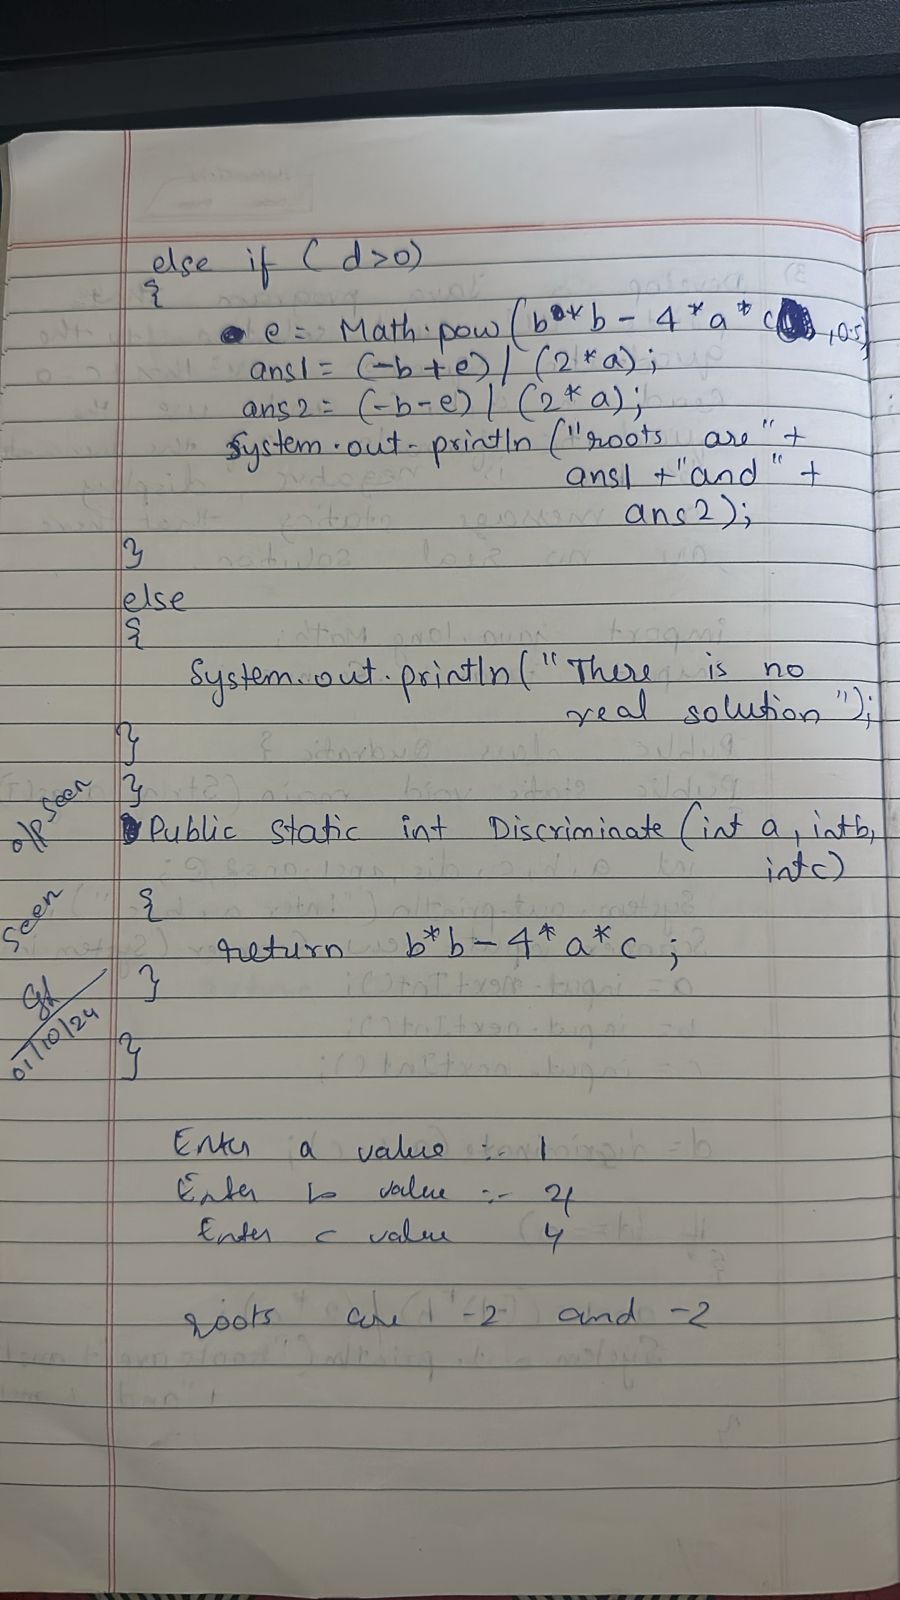 else if ( d>0)
{
e = Math.pow (b * b - 4 * a * c , 0.5)
ans1 = (-b + e) / (2 * a) ;
ans2 = (-b - e) / (2 * a) ;
System.out.println ("roots are" +
ans1 + "and" +
ans2);
}
else
{
System.out.println ("There is no
real solution");
}
}
o/p seen
Public static int Discriminate (int a, int b,
int c)
{
seen
return b * b - 4 * a * c ;
}
01/10/24
}
Enter a value :- 1
Enter b value :- 4
Enter c value 4
roots are -2 and -2